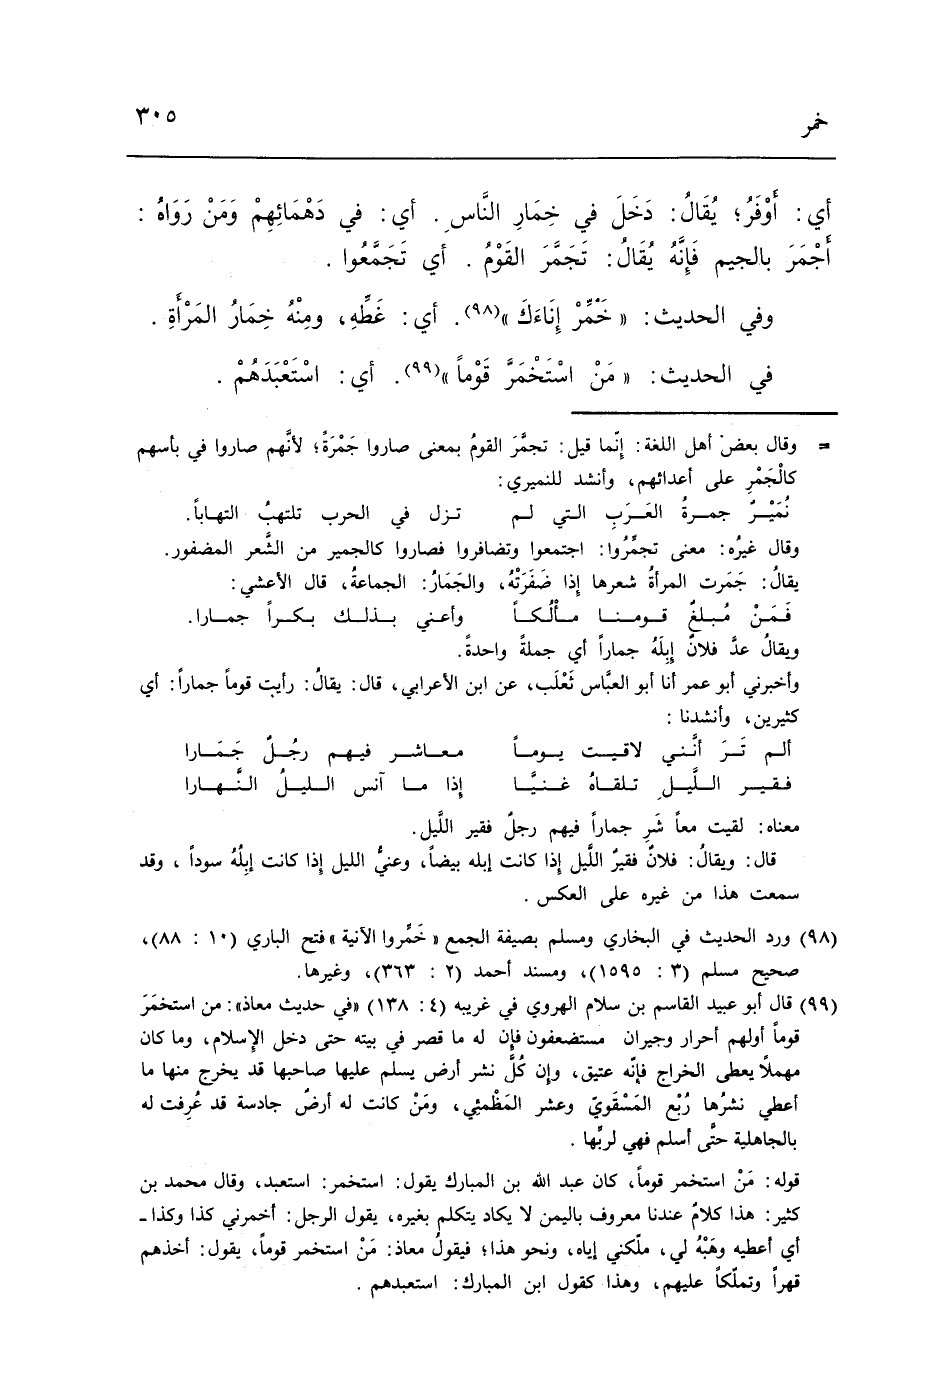 خمر
٣٠٥
أي: أَوْفَرُ؛ يُقَالُ: دَخَلَ في خِمَارِ النَّاسِ. أي: في دَهْمَائِهِمْ وَمَنْ رَوَاهُ :
أَجْمَرَ بالجيم فَإِنَّهُ يُقَالُ: تَجَمَّرَ القَوْمُ . أي تَجَمَّعُوا .
وفي الحديث: « خَمِّرْ إِنَاءَكَ »(٩٨). أي: غَطِّهِ، ومِنْهُ خِمَارُ المَرْأَةِ .
في الحديث: « مَنْ اسْتَخْمَرَّ قَوْماً »(٩٩). أي: اسْتَعْبَدَهُمْ .
= وقال بعضُ أهل اللغة: إنّما قيل: تجمَّرَ القومُ بمعنى صاروا جَمْرَةً؛ لأنَّهم صاروا في بأسهم
كالْجَمْرِ على أعدائهم، وأنشد للنميري:
نُمَيْـرٌ جمـرةُ العَـرَبِ التي لم تـزل في الحرب تلتهبُ التهاباً.
وقال غيرُه: معنى تجمَّرُوا: اجتمعوا وتضافروا فصاروا كالجمير من الشَّعر المضفور.
يقالُ: جَمَرت المرأةُ شعرها إذا ضَفَرَتْهُ، والجَمَارُ: الجماعةُ، قال الأعشي:
فَـمَـنْ مُـبـلـغٌ قـومـنـا مـأْلُـكـاً وأعـني بـذلـك بـكـراً جمـارا.
ويقالُ عدَّ فلانٌ إبِلَهُ جماراً أي جملةً واحدةً.
وأخبرني أبو عمر أنا أبو العبَّاس ثَعْلَب، عن ابن الأعرابي، قال: يقالُ: رأيت قوماً جماراً: أي
كثيرين، وأنشدنا :
ألـم تَـرَ أنَّـني لاقـيـت يـومـاً معـاشـر فيـهـم رجُـلٌ جَـمَـارا
فـقـيـر اللَّـيـلِ تـلقـاهُ غـنـيَّـا إذا مـا آنس الـليـلُ النَّـهـارا
معناه: لقيت معاً شَرِ جماراً فيهم رجلٌ فقير اللَّيل.
قال: ويقالُ: فلانٌ فقيرٌ اللَّيل إذا كانت إبله بيضاً، وعنيُّ الليل إذا كانت إبِلُهُ سوداً ، وقد
سمعت هذا من غيره على العكس .
(٩٨) ورد الحديث في البخاري ومسلم بصيفة الجمع « خَمِّروا الآنية » فتح الباري (١٠ : ٨٨)،
صحيح مسلم (٣ : ١٥٩٥)، ومسند أحمد (٢ : ٣٦٣)، وغيرها.
(٩٩) قال أبو عبيد القاسم بن سلام الهروي في غريبه (٤: ١٣٨) «في حديث معاذ»: من استخمَرَ
قوماً أولهم أحرار وجيران مستضعفون فإن له ما قصر في بيته حتى دخل الإسلام، وما كان
مهملاً يعطى الخراج فإنّه عتيق، وإن كُلَّ نشر أرض يسلم عليها صاحبها قد يخرج منها ما
أعطي نشرُها رُبْع المَسْقَويّ وعشر المَظْمئِي، ومَنْ كانت له أرضٌ جادسة قد عُرفت له
بالجاهلية حتَّى أسلم فهي لربِّها .
قوله: مَنْ استخمر قوماً، كان عبد الله بن المبارك يقول: استخمر: استعبد، وقال محمد بن
كثير: هذا كلامٌ عندنا معروف باليمن لا يكاد يتكلم بغيره، يقول الرجل: أخمرني كذا وكذا ـ
أي أعطيه وهَبْهُ لي، ملّكني إياه، ونحو هذا؛ فيقولُ معاذ: مَنْ استخمر قوماً، يقول: أخذهم
قهراً وتملّكاً عليهم، وهذا كقول ابن المبارك: استعبدهم .